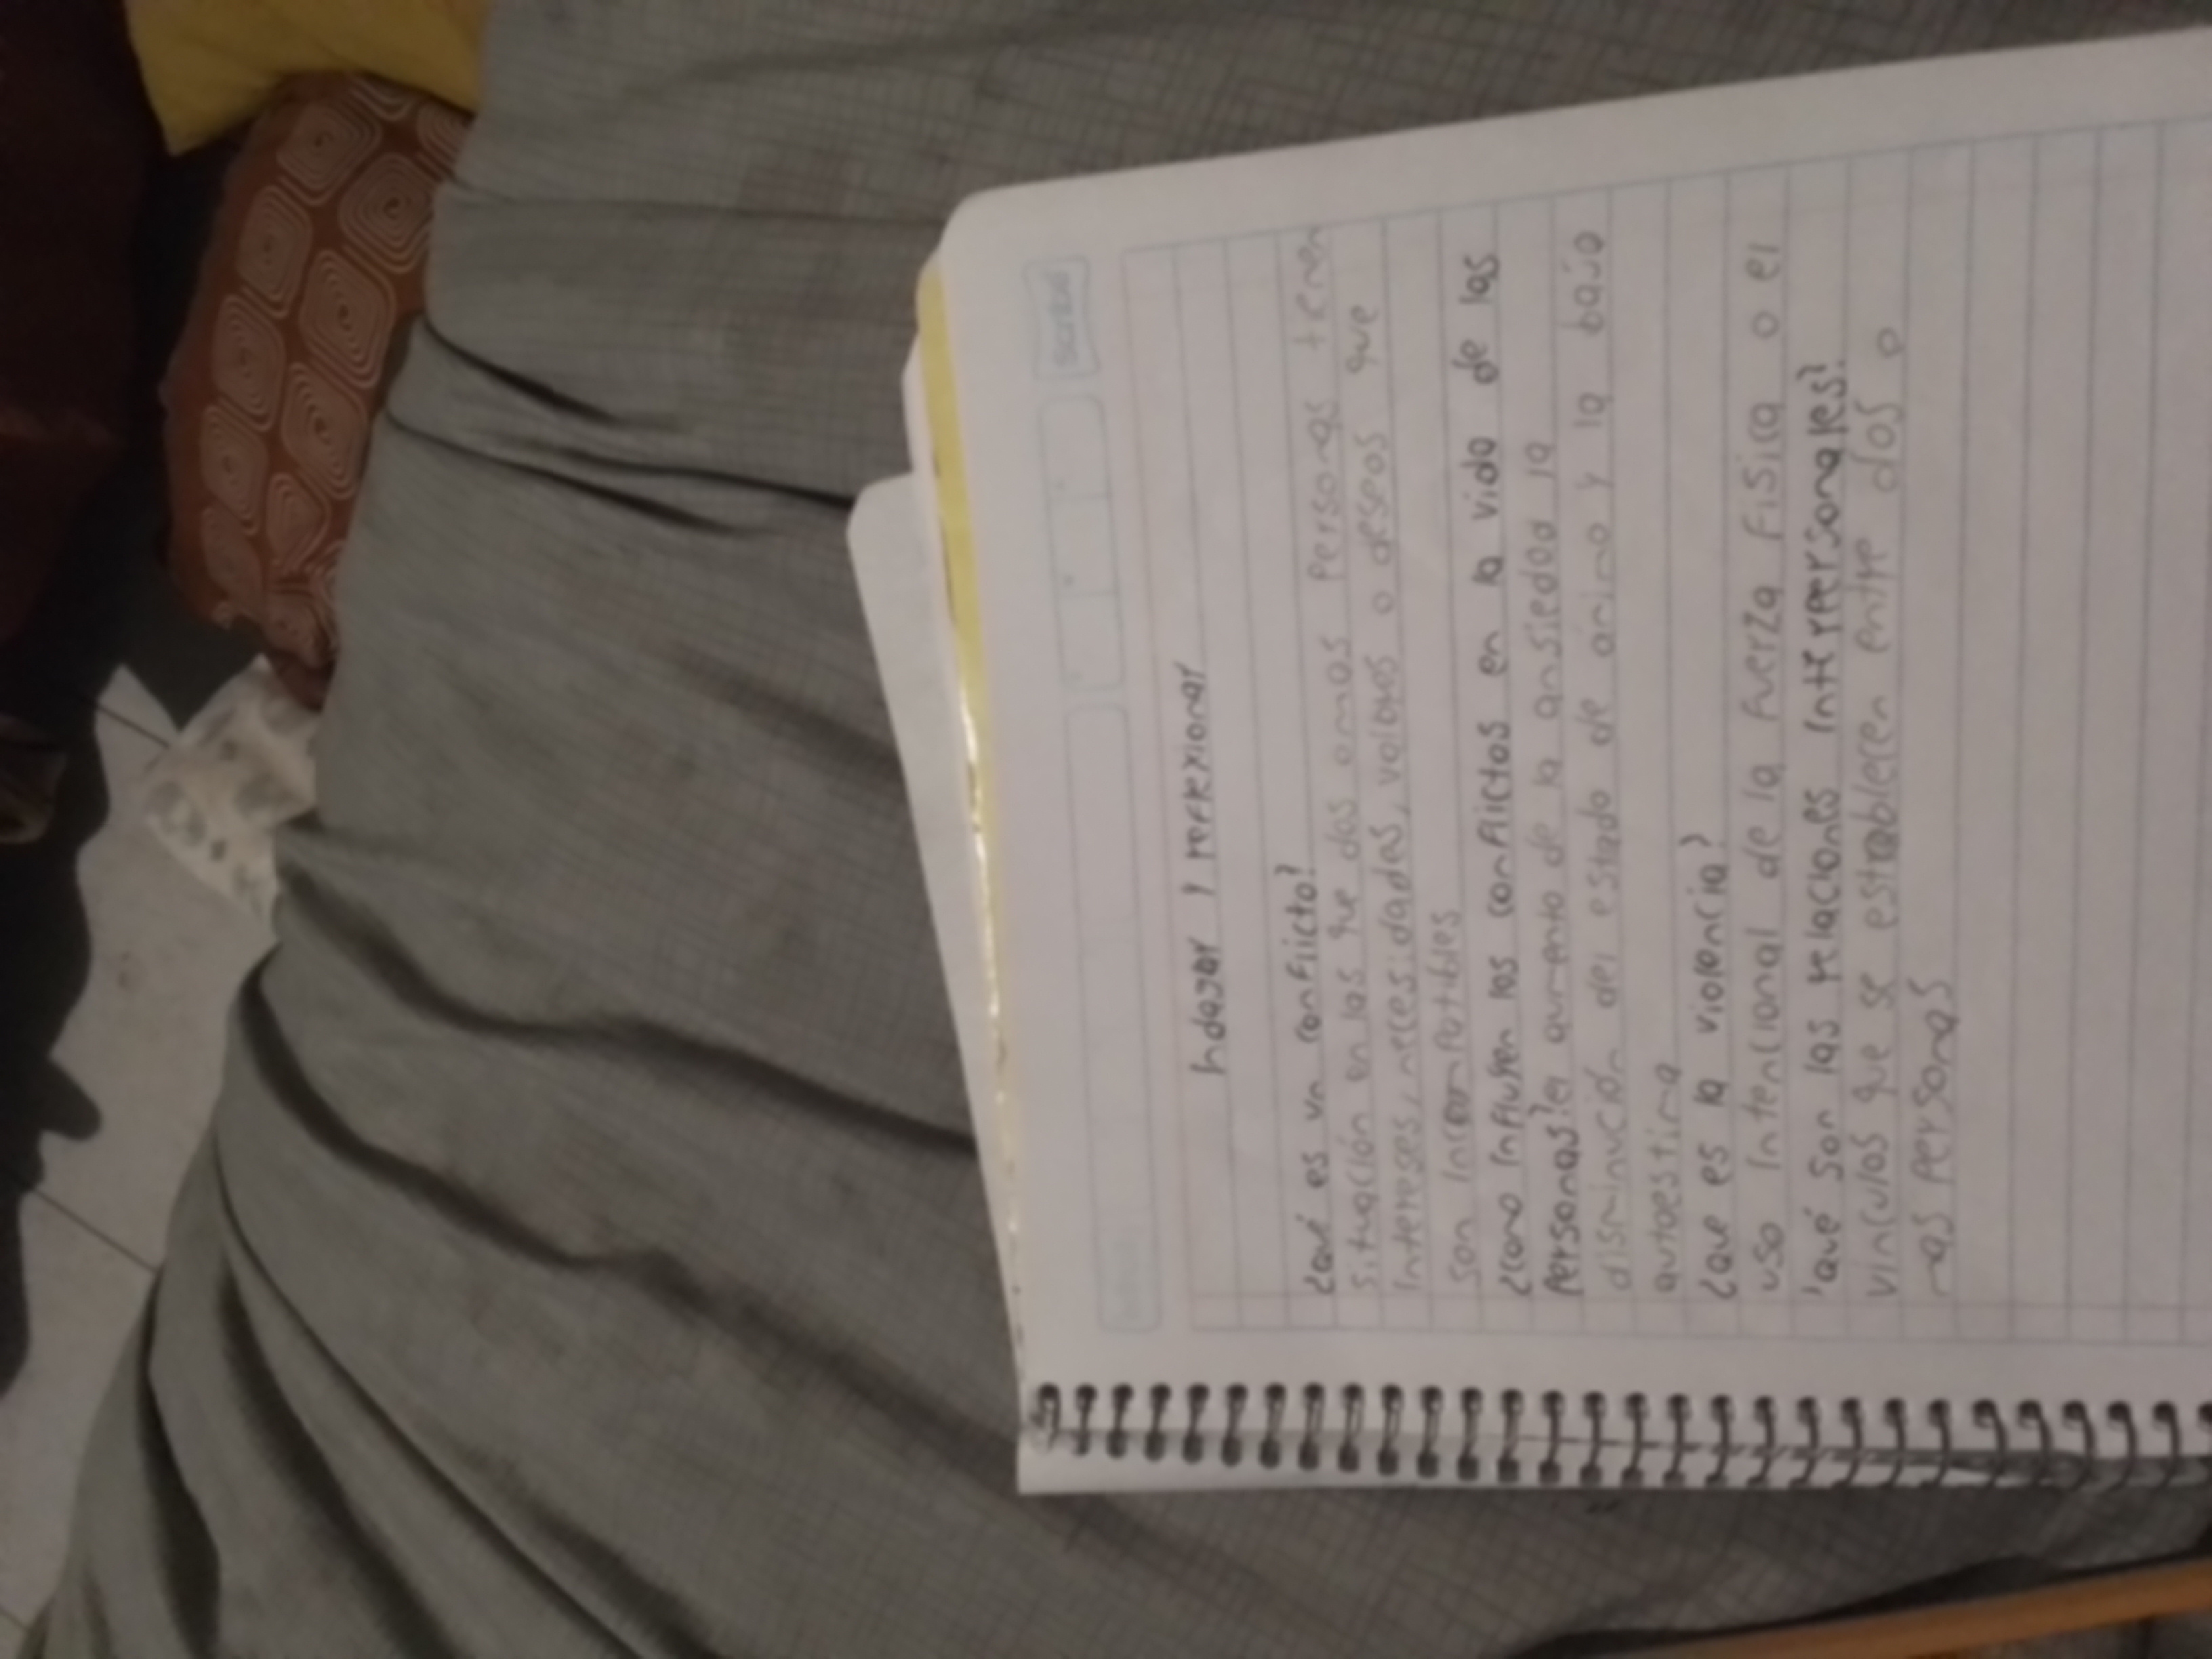 Indagar y reflexionar
¿qué es un conflicto?
situación en las que dos o mas personas tienen
Intereses, necesidades, valores o deseos que
son Incompatibles
¿como Influyen los conflictos en la vida de las
personas? el aumento de la ansiedad la
disminución del estado de ánimo y la baja
autoestima
¿que es la violencia?
uso Intencional de la fuerza fisica o el
¿qué son las relaciones Interpersonales?
vinculos que se establecen entre dos o
mas personas